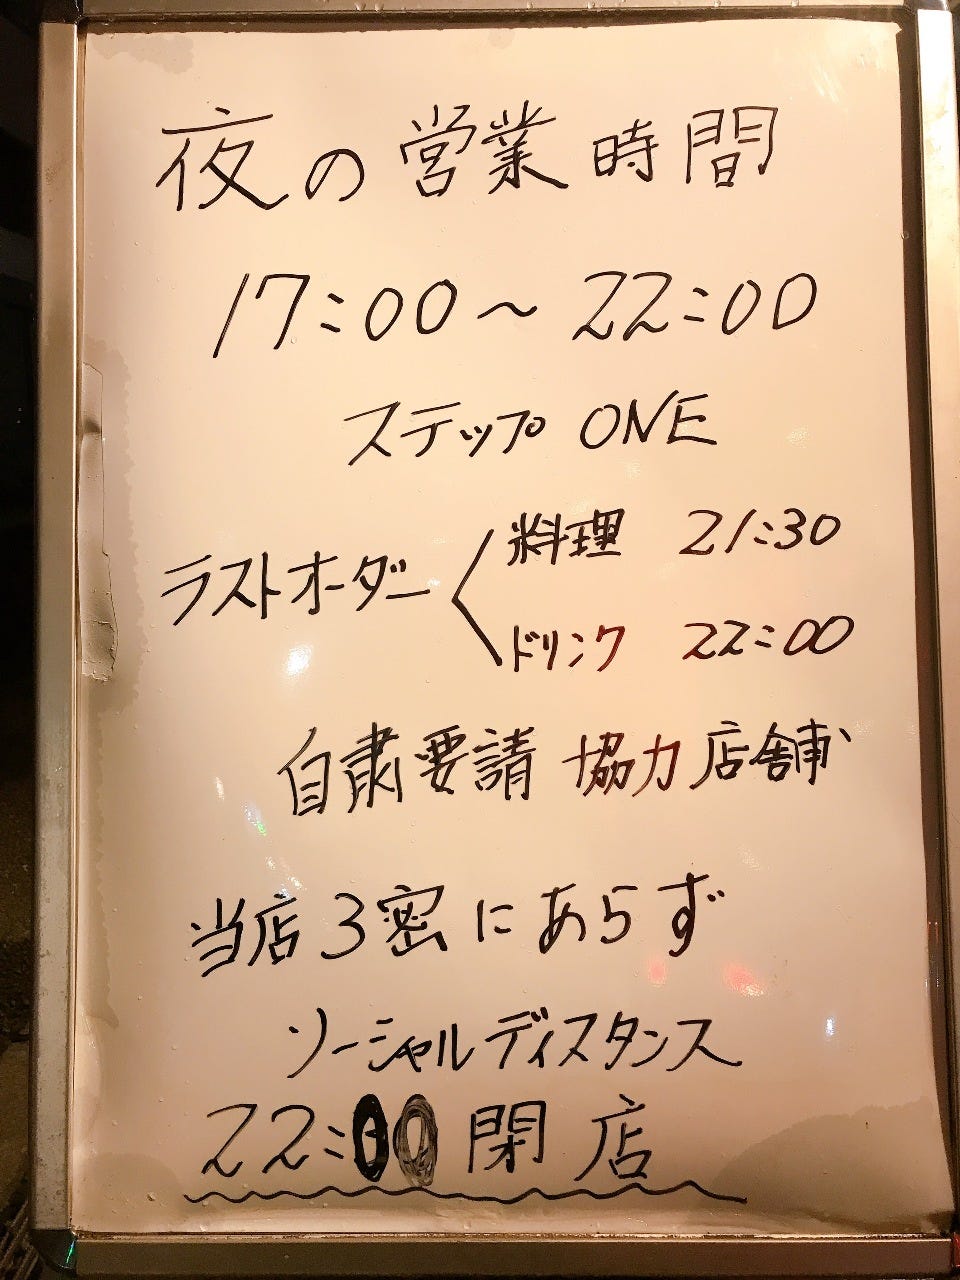 夜の営業時間
17:00～22:00
ステップONE
ラストオーダー
料理 21:30
ドリンク 22:00
自粛要請 協力店舗
当店3密にあらず
ソーシャルディスタンス
22:00閉店